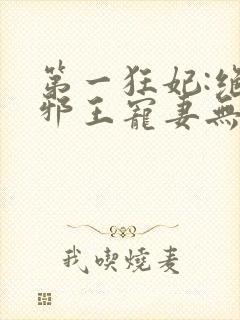 第一狂妃:绝
邪王寵妻無
我喫燒麦